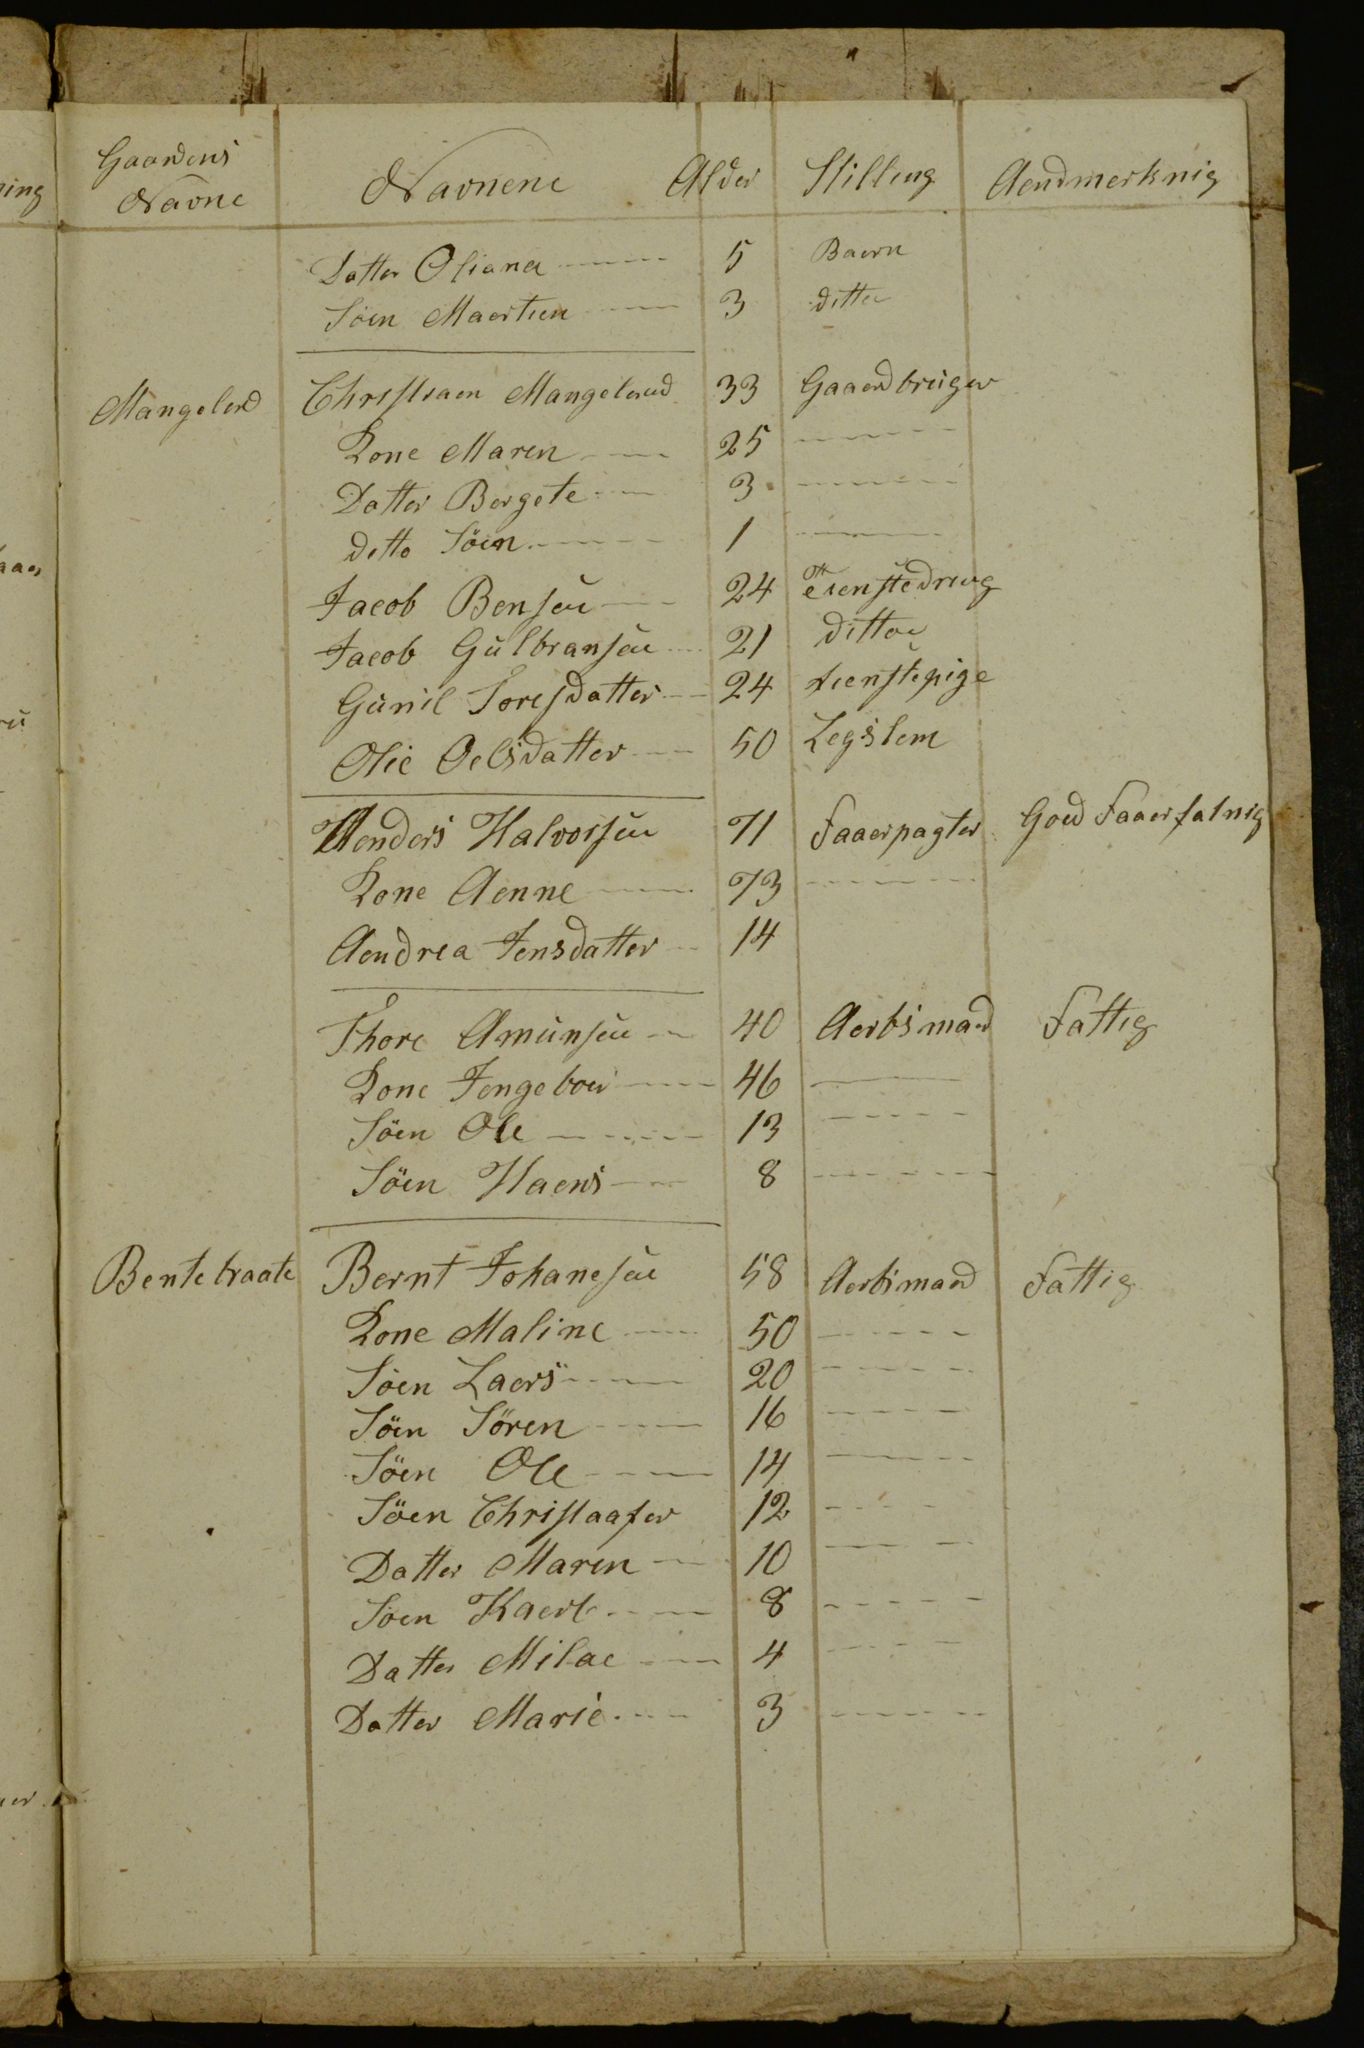 Gaardens Navne Navnene Alder Stilling Aendmerknig
Datter Oliana 5 Baern
Söen Maerten 3 ditte
Mangelerd Christiaen Mangelerud 33 Gaaerdbruger
Kone Maren 25
Datter Bergete 3
ditto Söen 1
Jacob Bensen 24 Tienstedreng
Jacob Gulbransen 21 ditto
Gunil Toresdatter 24 tienstepige
Olie Oelsdatter 50 Legslem
Aenders Halvorsen 71 Faaerpagter Goed Faaerfatnig
Kone Aenne 73
Aendrea Jensdatter 14
Thore Amunsen 40 Aerbsmaed Fattig
Kone Jengeboer 46
Söen Ole 13
Söen Haens 8
Bentebraate Bernt Johanesen 58 Aerbsmaed Fattig
Kone Maline 50
Söen Laers 20
Söen Sören 16
Söen Ole 14
Söen Christaafer 12
Datter Maren 10
Söen Kaerl 8
Datter Milae 4
Datter Marie 3